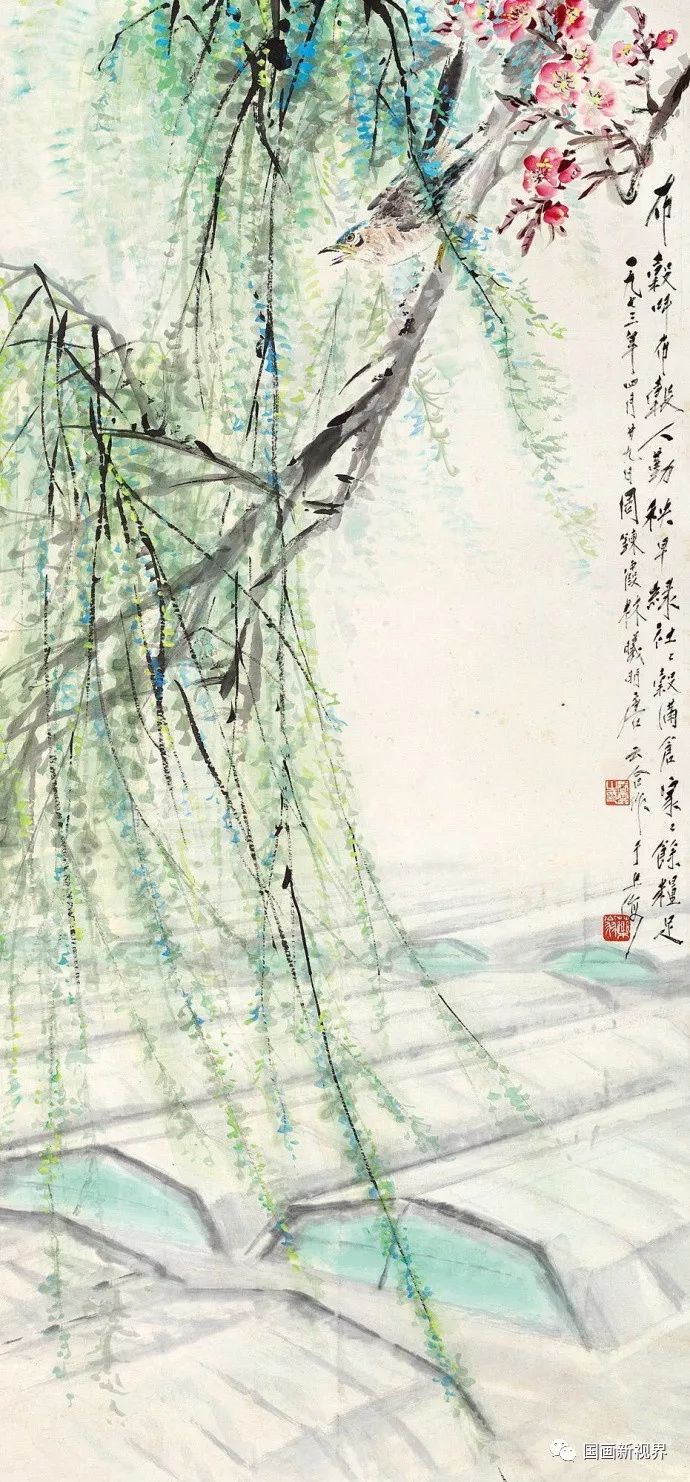 布穀叫布穀人勤秧早綠社〻穀滿倉家〻餘糧足
一九七三年四月廿九日周鍊霞林曦明唐云合作于上海
国画新视界